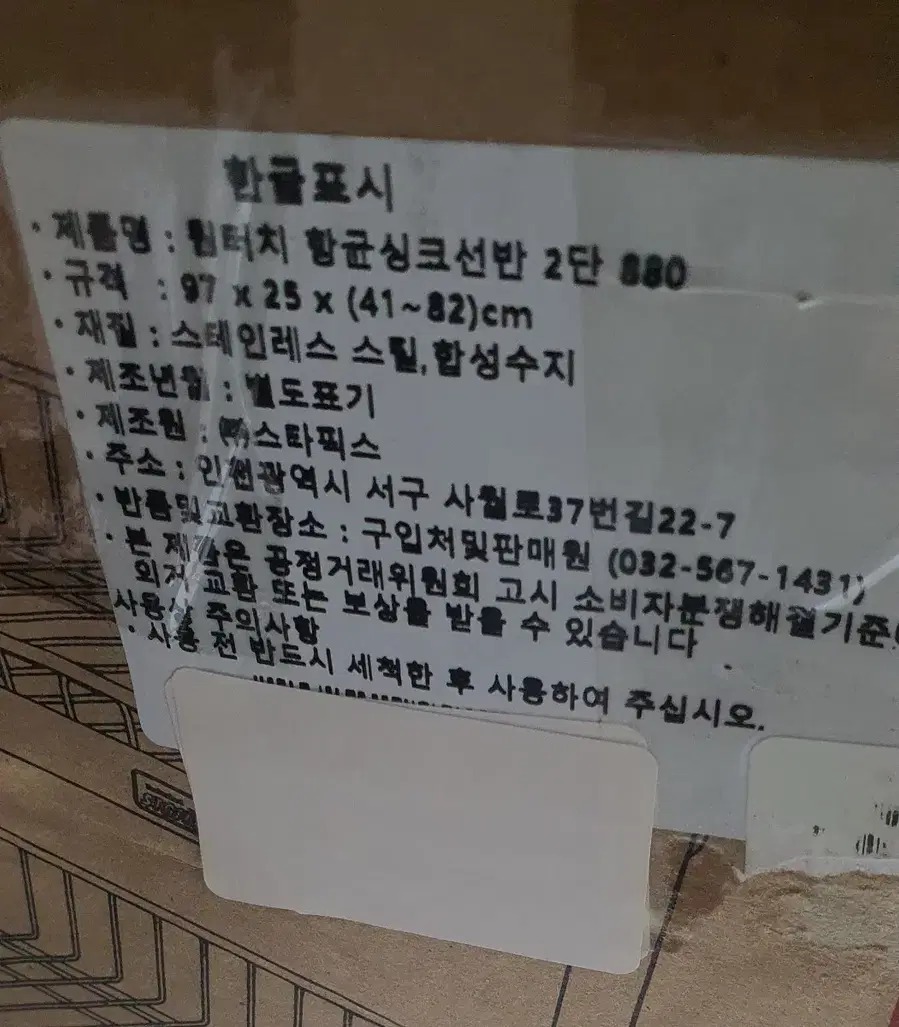 한글표시
· 제품명 : 원터치 항균싱크선반 2단 880
· 규격 : 97 x 25 x (41~82)cm
· 재질 : 스테인레스 스틸,합성수지
· 제조년월 : 별도표기
· 제조원 : ㈜스타픽스
· 주소 : 인천광역시 서구 사월로37번길22-7
· 반품및교환장소 : 구입처및판매원 (032-567-1431)
· 본 제품은 공정거래위원회 고시 소비자분쟁해결기준
의거 교환 또는 보상을 받을 수 있습니다
사용상 주의사항
· 사용 전 반드시 세척한 후 사용하여 주십시오.